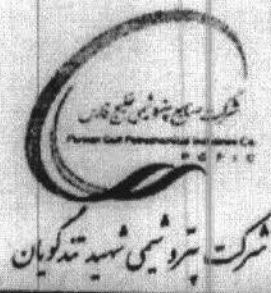 شرکت صنایع پتروشیمی خلیج فارس
Persian Gulf Petrochemical Industries Co.
P G P I C
شرکت پتروشیمی شهید تندگویان